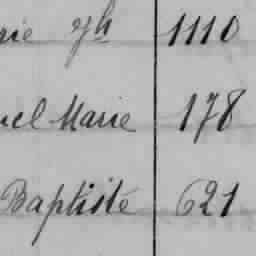 rie Jh 1110
uel Marie 178
Baptiste 621